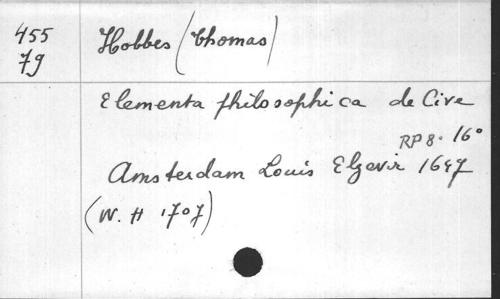 455
79
Hobbes (Thomas)
Elementa philosophica de Cive
RP 8° 16°
Amsterdam Louis Elzevir 1647
(W. H 1707)